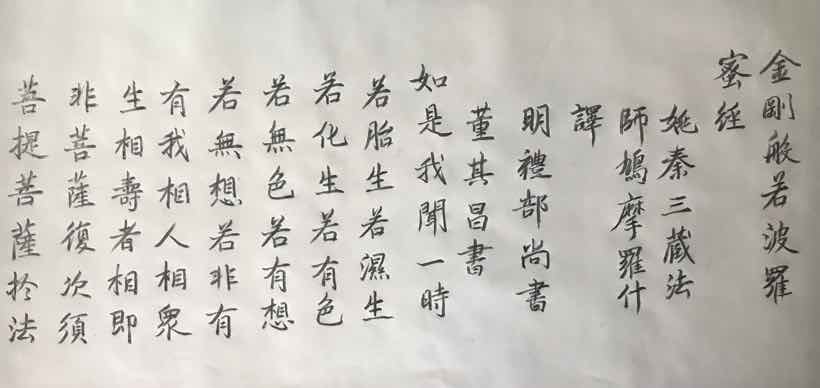 金剛般若波羅
蜜經
姚秦三藏法
師鳩摩羅什
譯
明禮部尚書
董其昌書
如是我聞一時
若胎生若濕生
若化生若有色
若無色若有想
若無想若非有
有我相人相眾
生相壽者相即
非菩薩復次須
菩提菩薩於法